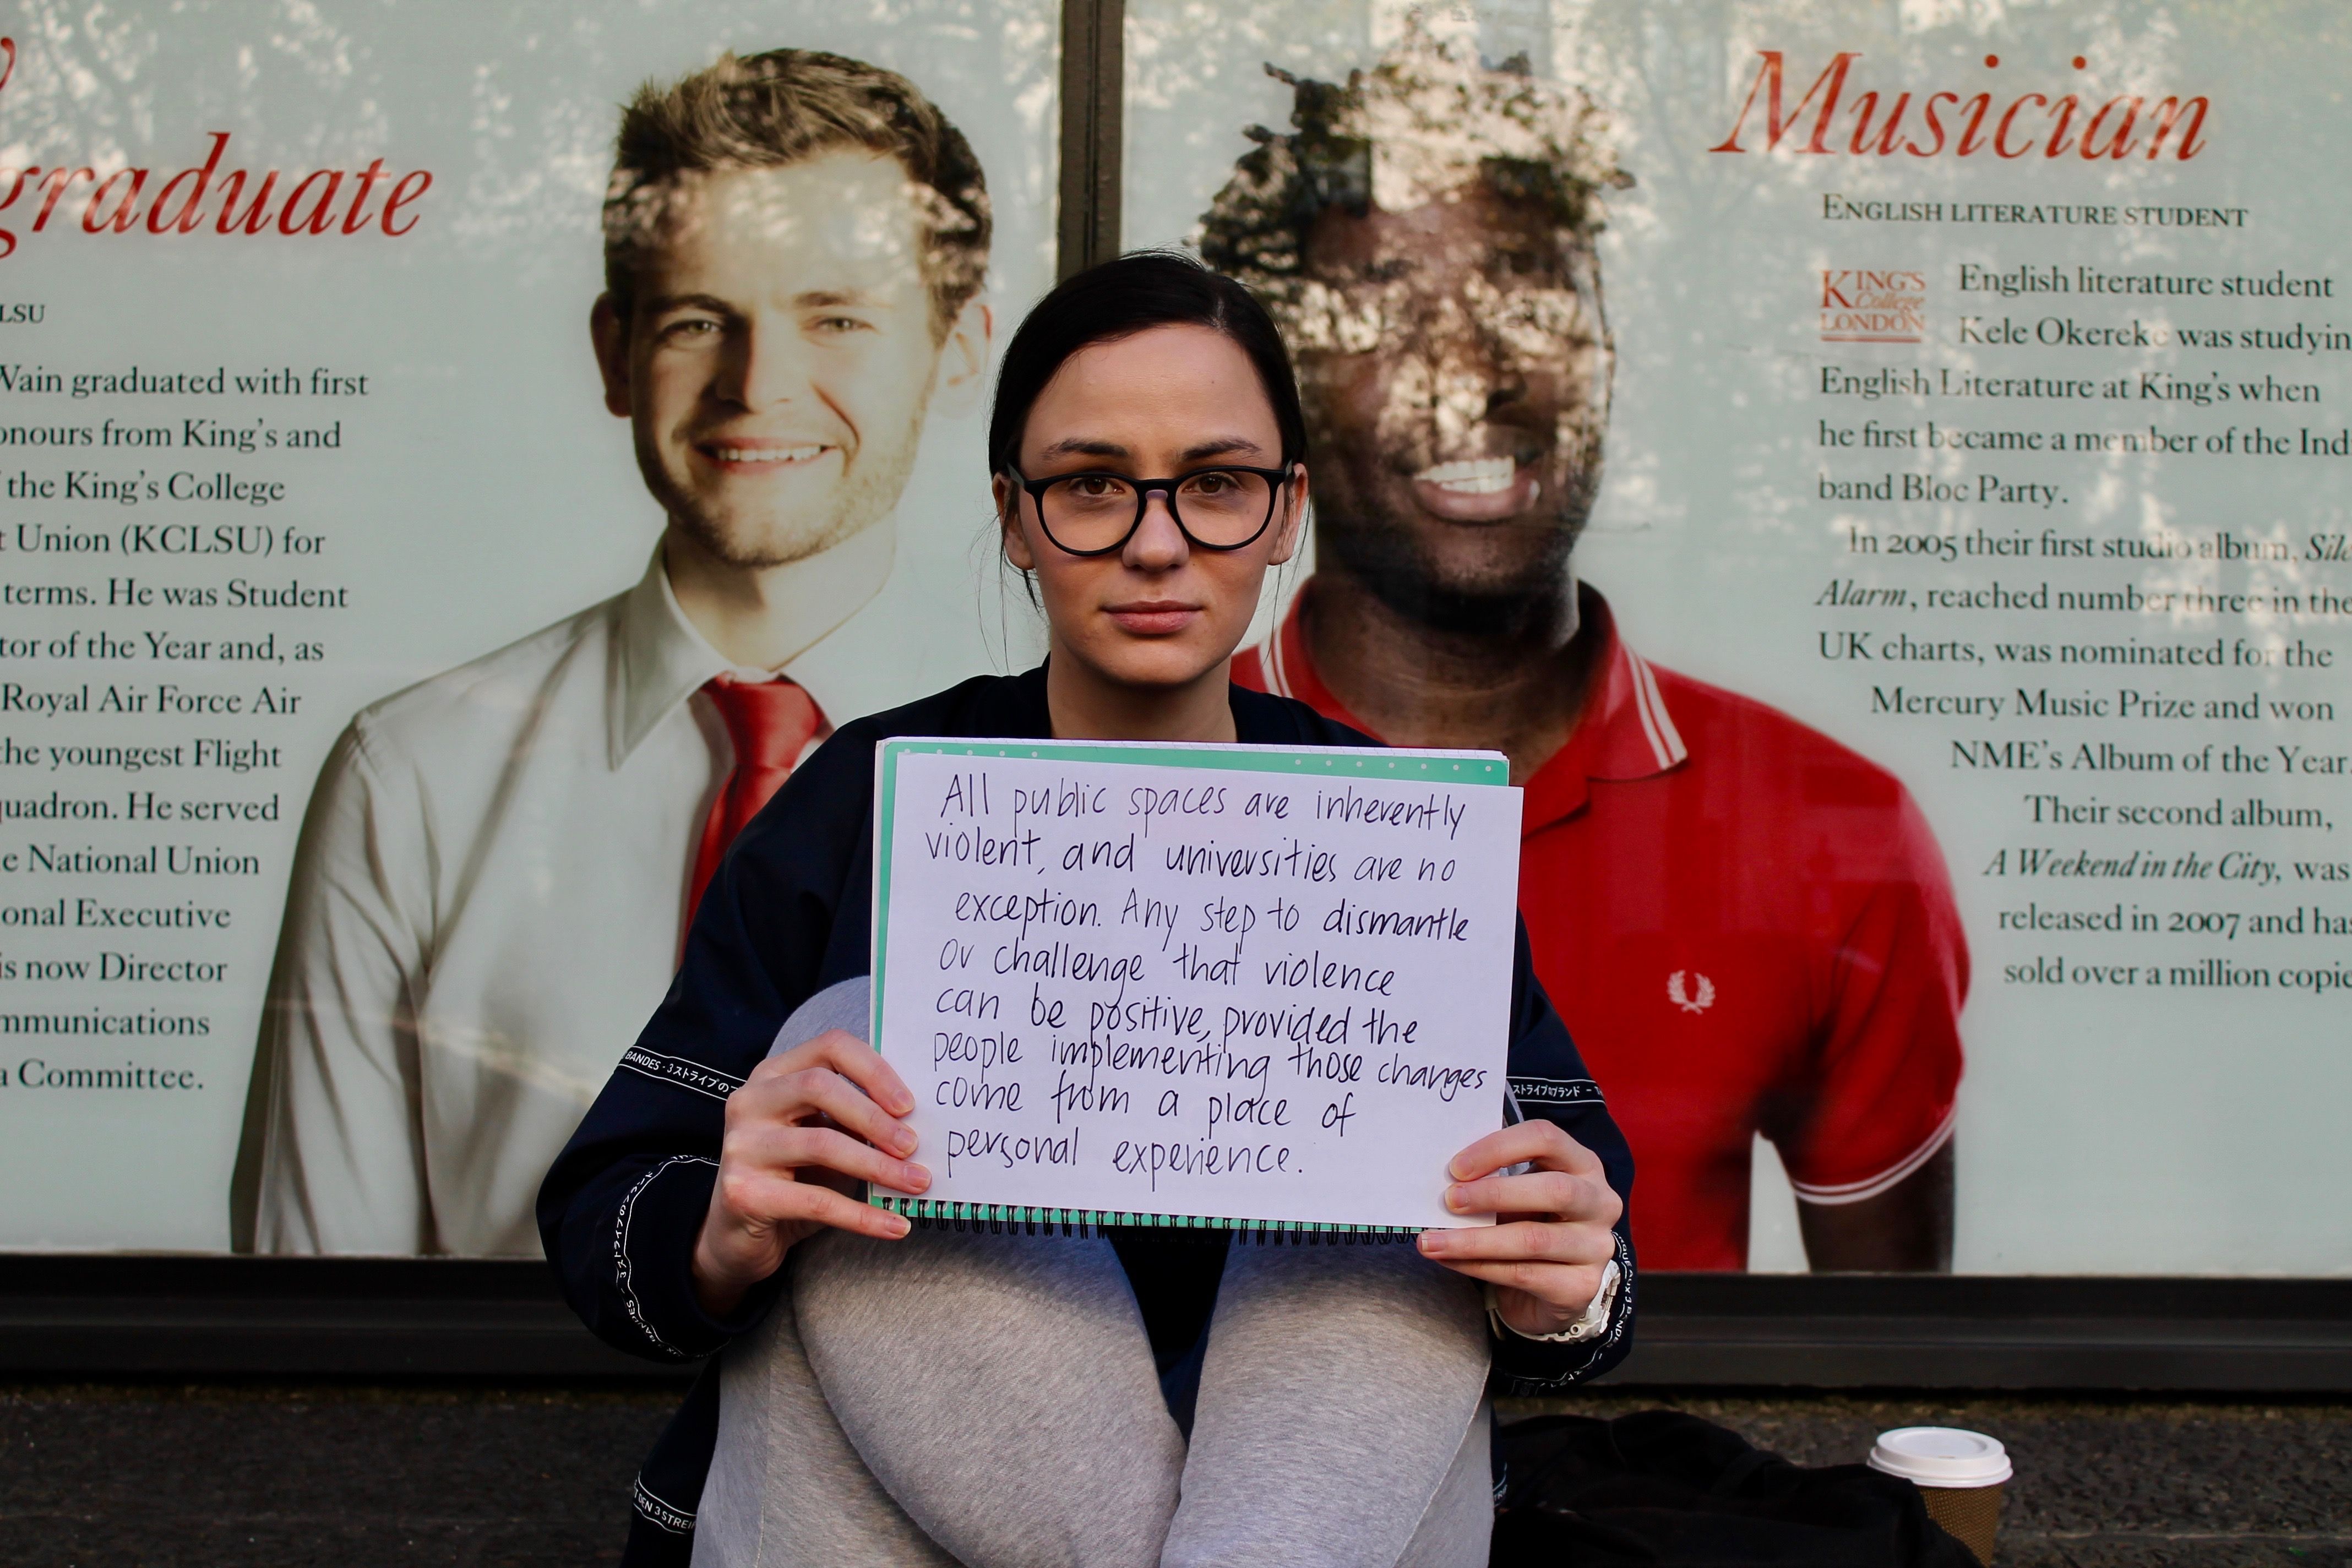 graduate
LSU
Wain graduated with first
onours from King's and
the King's College
t Union (KCLSU) for
terms. He was Student
tor of the Year and, as
Royal Air Force Air
the youngest Flight
quadron. He served
e National Union
onal Executive
is now Director
mmunications
a Committee.
Musician
ENGLISH LITERATURE STUDENT
KING'S
College
LONDON
English literature student
Kele Okereke was studyin
English Literature at King's when
he first became a member of the Ind
band Bloc Party.
In 2005 their first studio album, Sile
Alarm, reached number three in the
UK charts, was nominated for the
Mercury Music Prize and won
NME's Album of the Year.
Their second album,
A Weekend in the City, was
released in 2007 and has
sold over a million copie
All public spaces are inherently
violent, and universities are no
exception. Any step to dismantle
or challenge that violence
can be positive, provided the
people implementing those changes
come from a place of
personal experience.
BANDES - 3ストライプの
ストライプのブランド